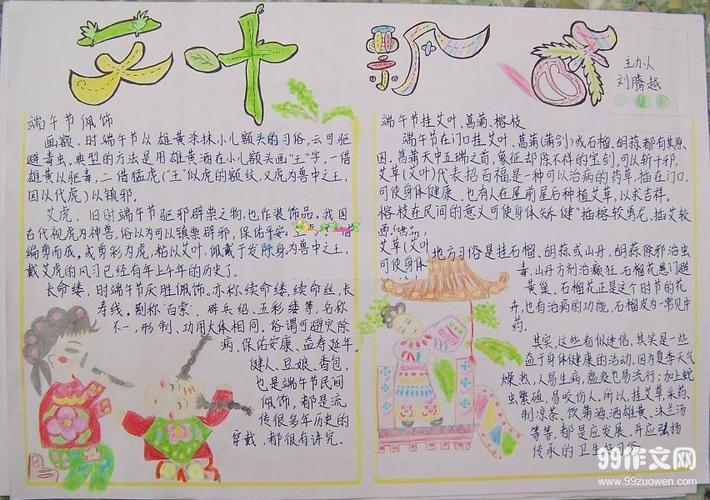 艾叶飘香
主办人
刘腾越
端午节佩饰
画额,时端午节以雄黄涂抹小儿额头的习俗,云可驱
避毒虫,典型的方法是用雄黄酒在小儿额头画"王"字,一借
雄黄以驱毒,二借猛虎("王"似虎的额纹,又虎为兽中之王,
因以代虎)以镇邪。
艾虎,旧时端午节驱邪辟祟之物,也作装饰品。我国
古代视虎为神兽,俗以为可以镇祟辟邪,保佑平安
编剪而成,或剪彩为虎,粘以艾叶,佩戴于发际身为兽中之王,
戴艾虎的风习已经有年上午年的历史了。
长命缕,时端午节厌胜佩饰。亦称续命缕,续命丝,长
寿线,别称"百索"、辟兵绍、五彩缕等,名称
不一,形制、功用大体相同。俗谓可避灾除
病、保佑安康、益寿延年。
健人、豆娘、香包,
也是端午节民间
佩饰,都是流
传很多年历史的
穿戴,都很有讲究.
端午节挂艾叶、菖蒲、榕枝
端午节在门口挂艾叶、菖蒲(蒲剑)或石榴、胡蒜,都有其原
因。菖蒲天中五瑞之首,象征却除不祥的宝剑,可以斩千邪。
艾草(艾叶)代表招百福是一种可以治病的药草,插在门口,
可使身体健康。也有人在屋前屋后种植艾草,以求吉祥。
榕枝在民间的意义可使身体矫健"插榕较勇龙,插艾较
艾草(艾叶
可使身体
地方习俗是挂石榴、胡蒜或山丹,胡蒜除邪治虫
毒,山丹方剂治癫狂。石榴花悬门避
黄巢。石榴花正是这个时节的花
卉,也有治病的功能,石榴皮为常见中
药。
其实,这些看似迷信,其实是一些
益于身体健康的活动,因为夏季天气
燥热,人易生病,瘟疫也易流行;加上蛇
虫繁殖,易咬伤人,所以,挂艾草采药、
制凉茶、饮菊酒,洒雄黄、沐兰汤
等等,都是应发展,并应弘扬
传承的卫生习俗
99作文网
www.99zuowen.com